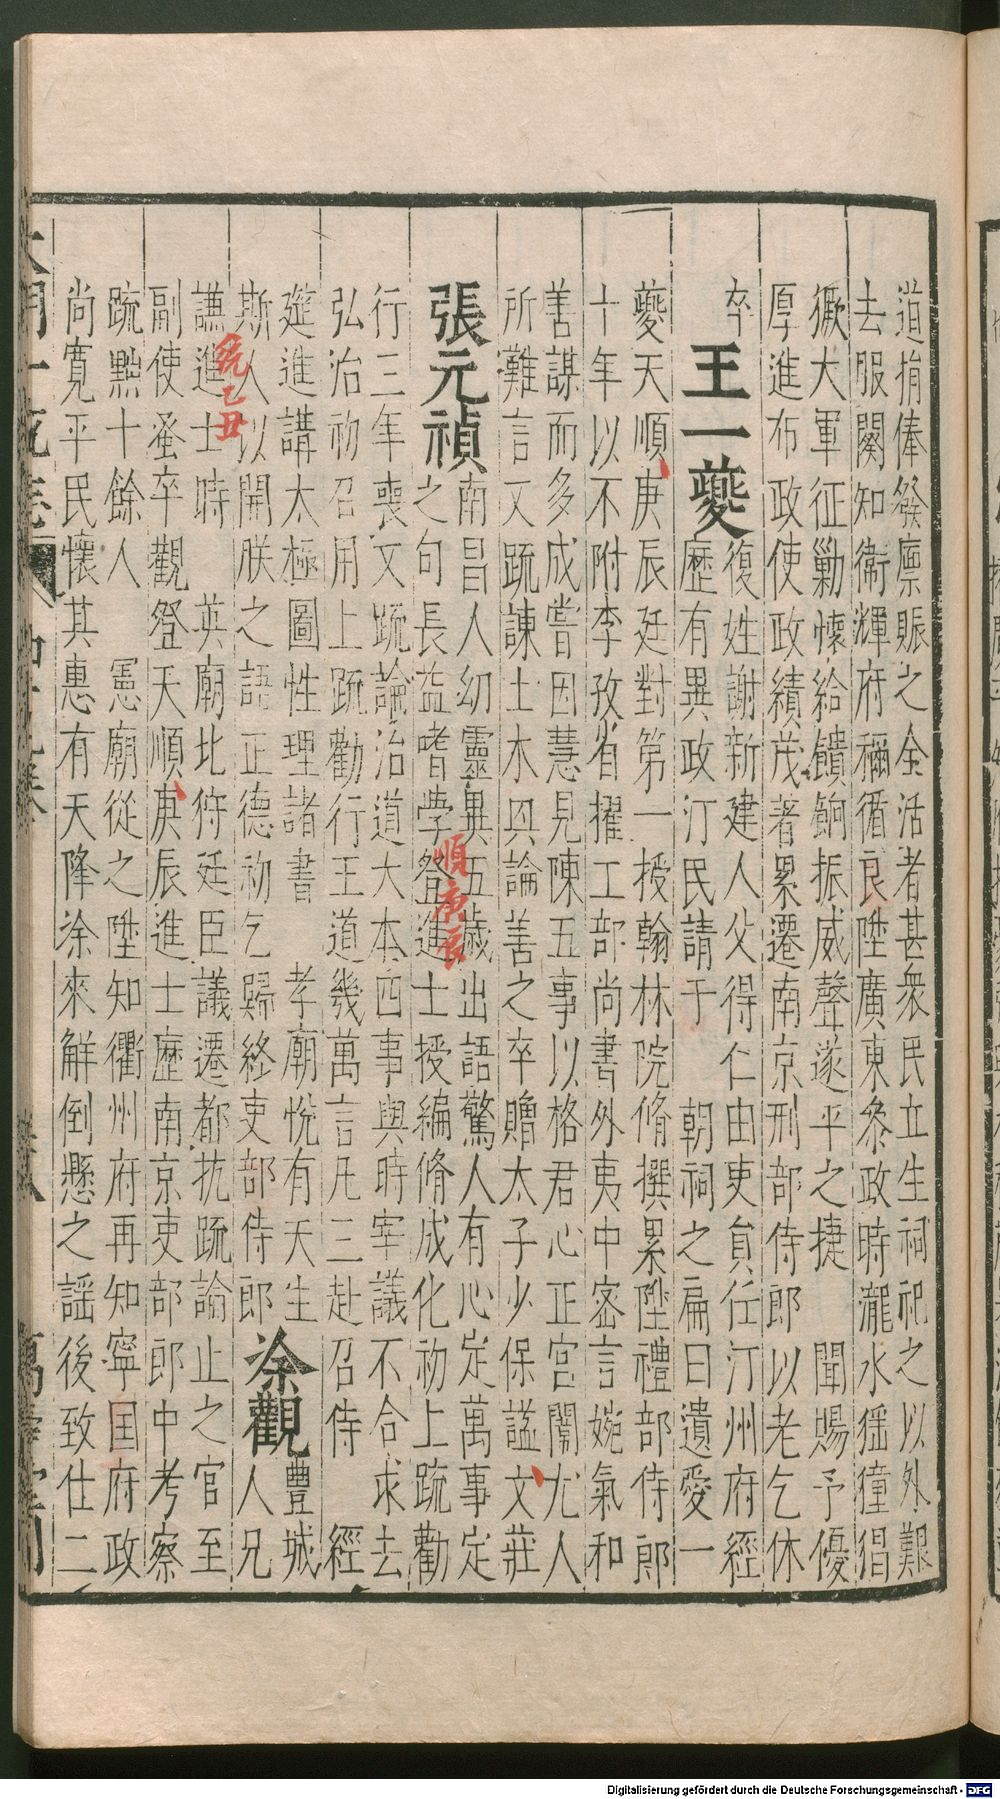 道捐俸發廪賑之全活者甚衆民立生祠祀之以外艱
去服闋知衞輝府稱循良陞廣東叅政時瀧水猺獞猖
獗大軍征勦懐給饋餉振威聲遂平之捷 聞賜予優
厚進布政使政績茂著累遷南京刑部侍郎以老乞休
卒
王一夔
復姓謝新建人父得仁由吏員任汀州府經
歴有異政汀民請于 朝祠之扁曰遺愛一
夔天順庚辰廷對第一授翰林院脩撰累陞禮部侍郎
十年以不附李孜省擢工部尚書外夷中宻言婉氣和
善謀而多成嘗因慧見陳五事以格君心正宫闈尤人
所難言又疏諫土木具論善之卒贈太子少保謚文莊
張元禎
南昌人幼靈異五歳出語驚人有心定萬事定
之句長益嗜學登進士授編脩成化初上疏勸
順庚辰
行三年喪又疏論治道大本四事與時宰議不合求去
弘治初召用上疏勸行王道幾萬言凡三赴召侍 經
筵進講太極圖性理諸書 孝廟悅有天生
斯人以開朕之語正德初乞歸終吏部侍郎
徐觀
豊城
人兄
謙進士時 英廟北狩廷臣議遷都抗疏論止之官至
統乙丑
副使蚤卒觀登天順庚辰進士歴南京吏部郎中考察
疏黜十餘人 憲廟從之陞知衢州府再知寧国府政
尚寛平民懷其惠有天降徐來解倒懸之謡後致仕二
Digitalisierung gefördert durch die Deutsche Forschungsgemeinschaft - DFG